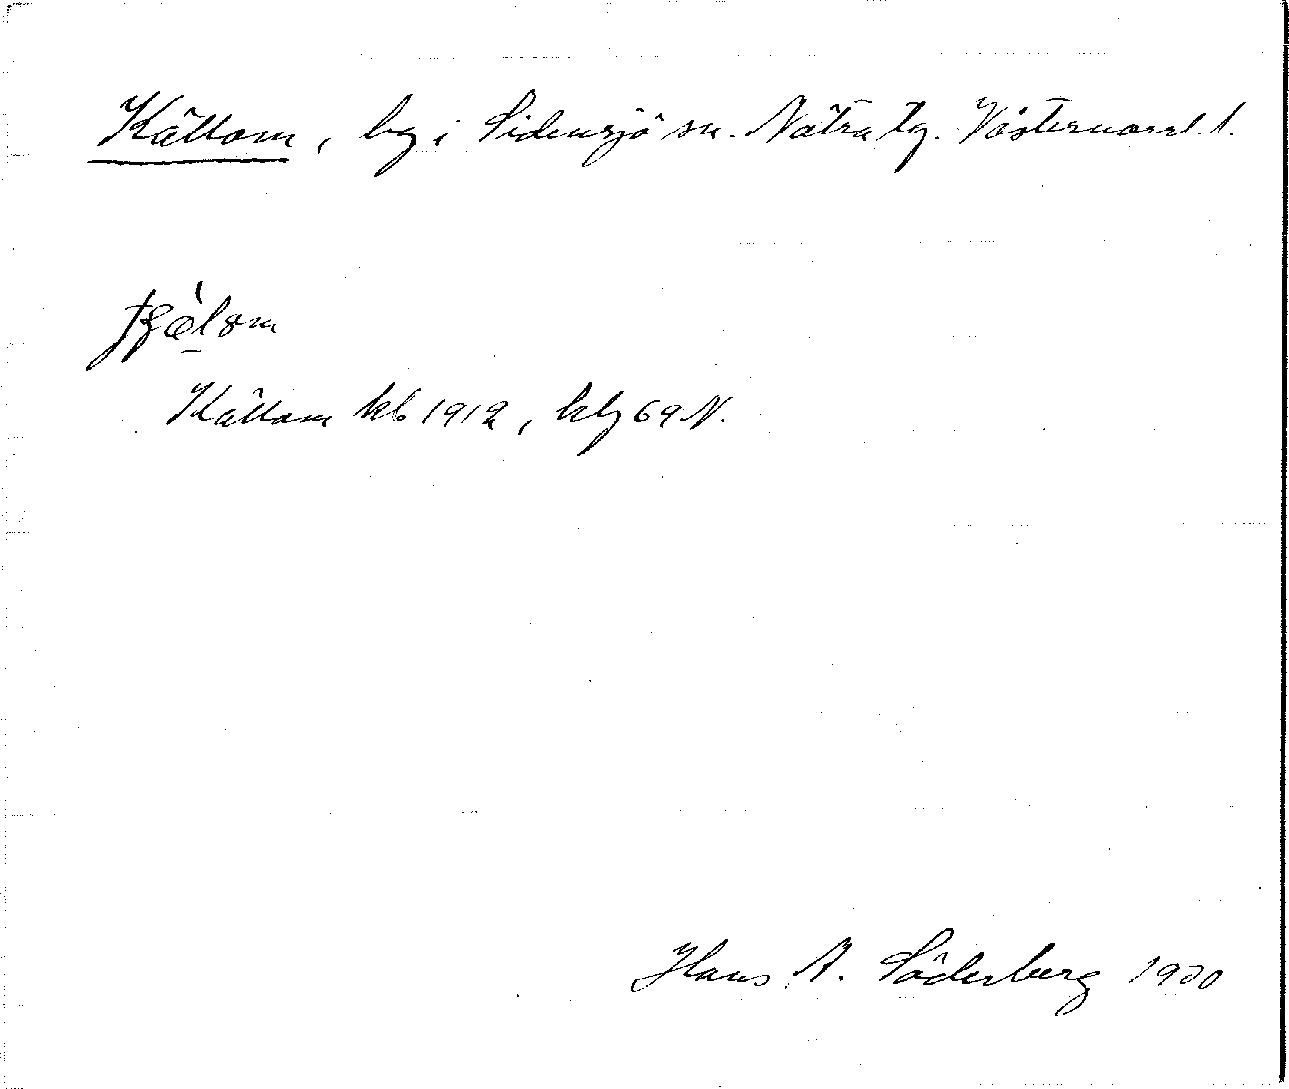 Källom, by i Sidensjö sn. Nätra tg. Västernorrl. l.
Källom kb 1912, klg 69 N.
Hans A. Söderberg 1920